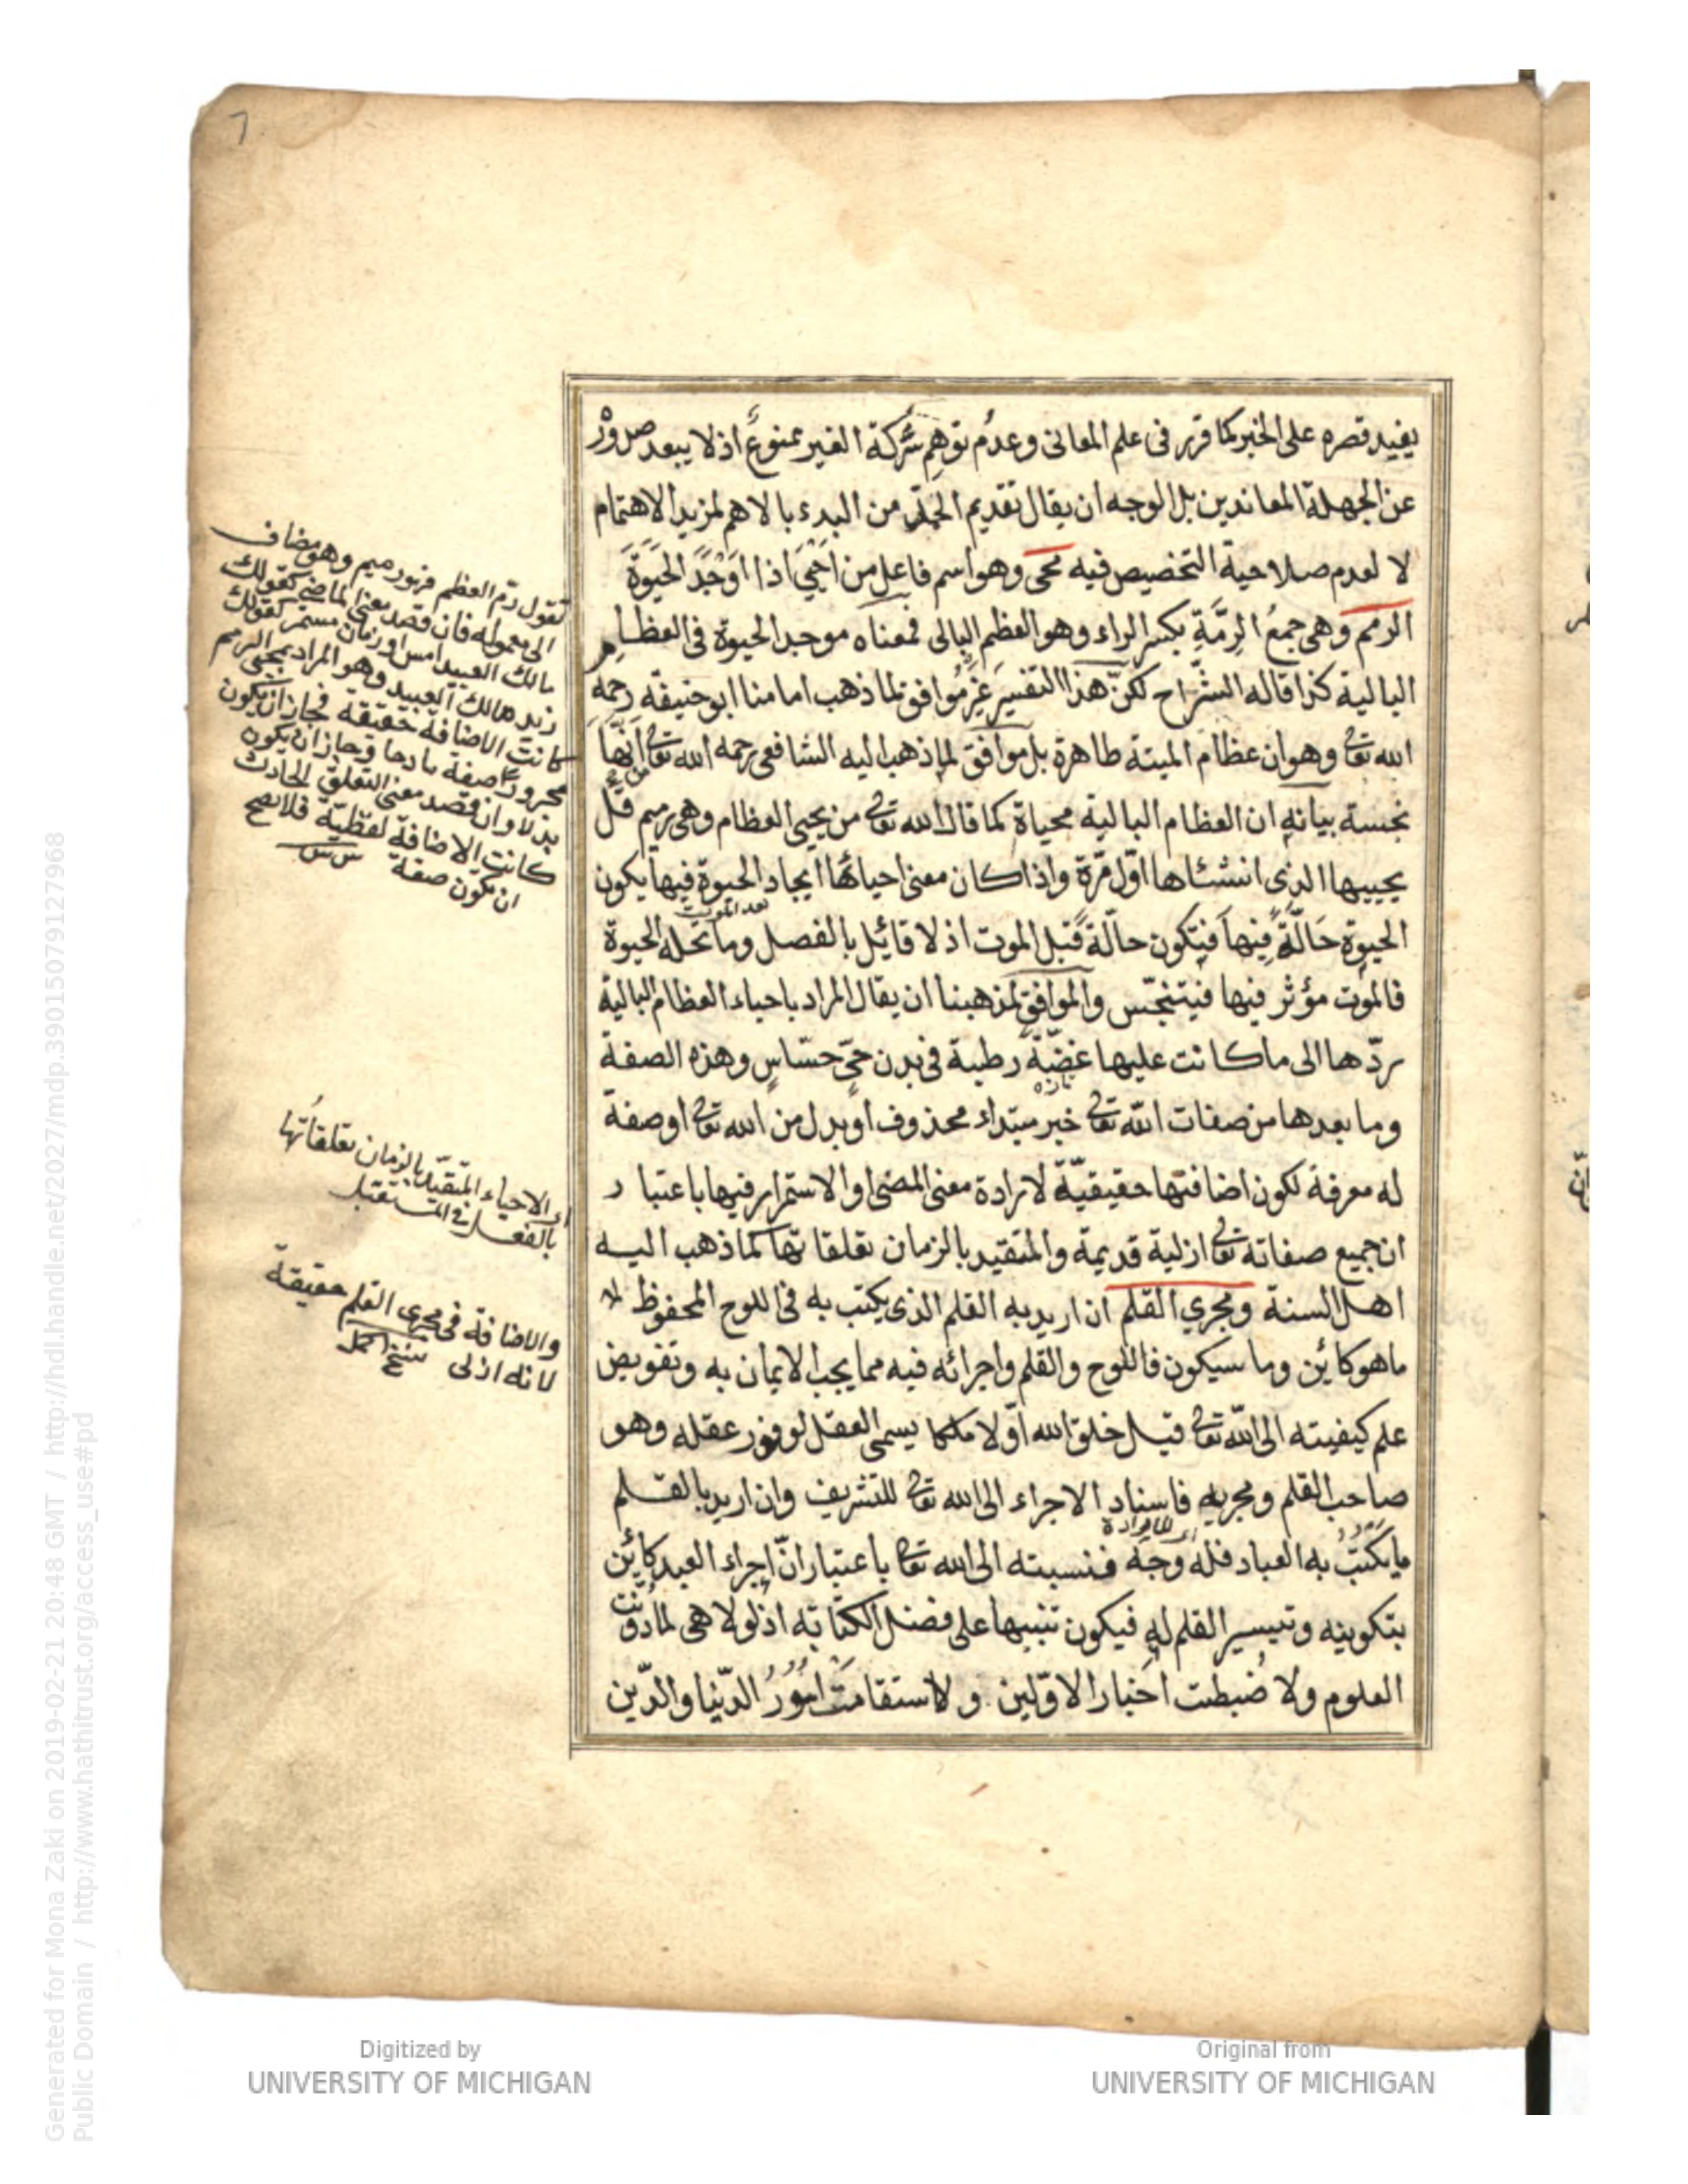 7
يفيد قصره على الخبر كما قرر فى علم المعانى وعدم توهم شركة الغير ممنوع اذ لا يبعد صدور
عن الجهلة المعاندين بل الوجه ان يقال تقديم الحمد من البدء بالاهم لمزيد الاهتمام
لا لعدم صلاحية التخصيص فيه محى وهو اسم فاعل من احيى اذا اوجد الحيوة
الرمم وهى جمع الرمة بكسر الراء وهو العظم البالى فمعناه موجد الحيوة فى العظام
البالية كذا قاله الشراح لكن هذا التفسير غير موافق لما ذهب امامنا ابو حنيفه رحمه
الله تعا وهو ان عظام الميتة طاهرة بل موافق لما ذهب اليه الشافعى رحمه الله تعا انها
نجسة بيانه ان العظام البالية محياة كما قال الله تعا من يحيى العظام وهى رميم قل
يحييها الذى انشئاها اول مرة واذا كان معنى احيائها ايجاد الحيوة فيها يكون
بعد الموت
الحيوة حالة فيها فيتكون حالة قبل الموت اذ لا قائل بالفصل وما تحله الحيوة
فالموت مؤثر فيها فيتنجس والموافق لمذهبنا ان يقال المراد باحياء العظام البالية
ردها الى ما كانت عليها غضة رطبة فى بدن حى حساس وهذه الصفة
تازه
وما بعدها من صفات الله تعا خبر مبتداء محذوف او بدل من الله تعا او صفة
له معرفة لكون اضافتها حقيقية لارادة معنى المضى او الاستمرار فيها باعتبار
ان جميع صفاته تعا ازلية قديمة والمتقيد بالزمان تعلقاتها كما ذهب اليه
اهل السنة ومجرى القلم ان اريد به القلم الذى يكتب به فى اللوح المحفوظ
ما هو كائن وما سيكون فاللوح والقلم واجرائه فيه مما يجب الايمان به وتفويض
علم كيفيته الى الله تعا قيل خلق الله اولا ملكا يسمى العقل لوفور عقله وهو
صاحب القلم ومجريه فاسناد الاجراء الى الله تعا للتشريف وان اريد بالقلم
ما يكتب به العباد فله وجه فنسبته الى الله تعا باعتبار ان اجراء العبد كائن
بتكوينه وتيسير القلم له فيكون تنبيها على فضل الكتابه اذ لولا هى لما دونت
العلوم ولا ضبطت اخبار الاولين ولا استقامت امور الدنيا والدين
تقول رم العظم فهو رميم وهو مضاف
الى معموله فان قصد معنى الماضى كقولك
مالك العبيد امس او زمان مستمر كقولك
زيد مالك العبيد وهو المراد بمحيى الرمم
كانت الاضافة حقيقة فجاز ان يكون
مجرورا صفة مادحا وجاز ان يكون
بدلا وان قصد معنى التعلق الحادث
كانت الاضافة لفظية فلا يصح
ان يكون صفة
اى الاحياء المتقيد بالزمان تعلقاتها
بالفعل فى المستقبل
والاضافة فى مجرى القلم حقيقة
لانه ازلى
Digitized by
UNIVERSITY OF MICHIGAN
Original from
UNIVERSITY OF MICHIGAN
Generated for Mona Zaki on 2019-02-21 20:48 GMT / http://hdl.handle.net/2027/mdp.39015079127968
Public Domain / http://www.hathitrust.org/access_use#pd